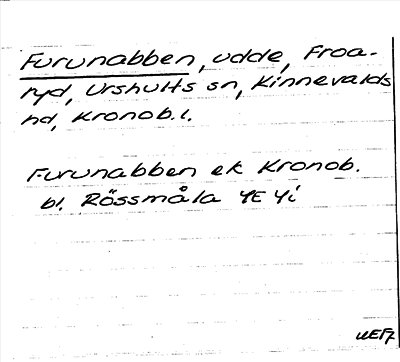 Furunabben, udde, Froa-
ryd, Urshults sn, Kinnevalds
hd, Kronob.l.
Furunabben ek Kronob.
bl. Rössmåla 4E 4i